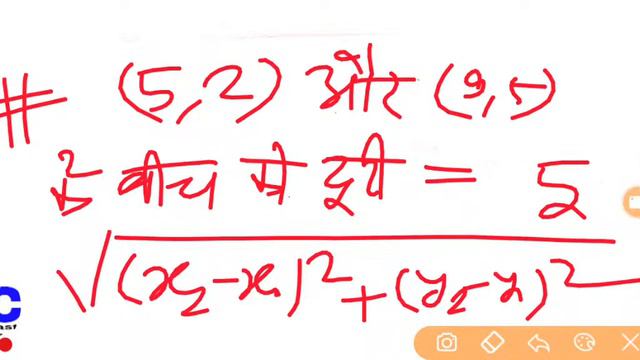 # (5,2) और (9,5)
के बीच मे दूरी = 5
√(x₂-x₁)²+(y₂-y₁)²
C